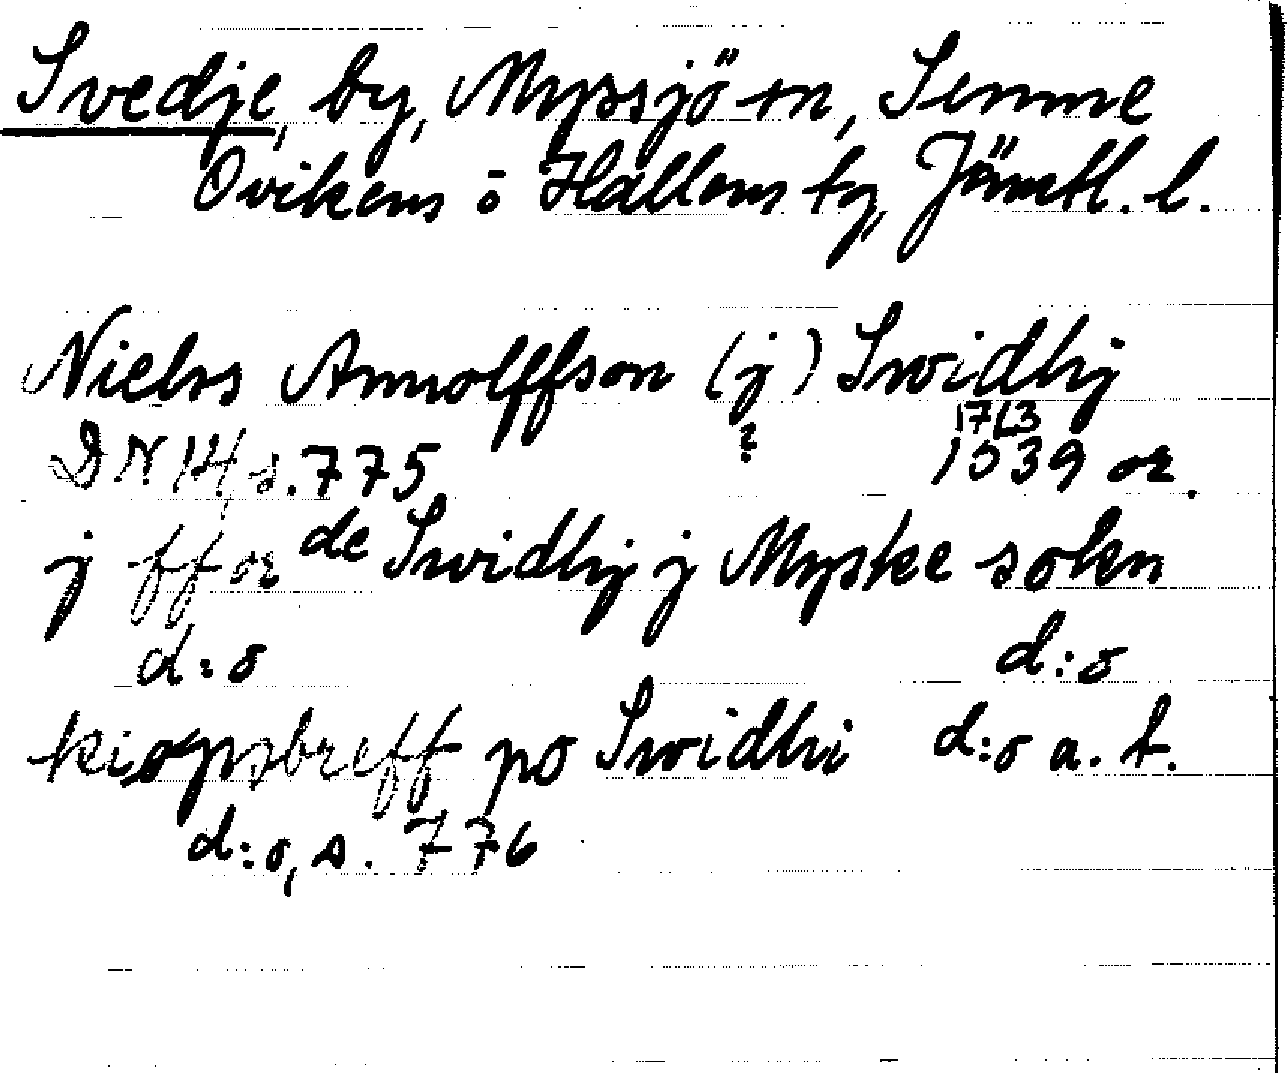 Svedje, by, Myssjö sn, Sunne
Ovikens o Hallens tg, Jämtl. l.
Niels Annolffson (j) Swidhij
? 17/3
DN 14, s. 775 1539 or.
j ffor de Swidhij j Myske sokn
d:o d:o
kiøpsbreff po Swidhi d:o a. t.
d:o, s. 776